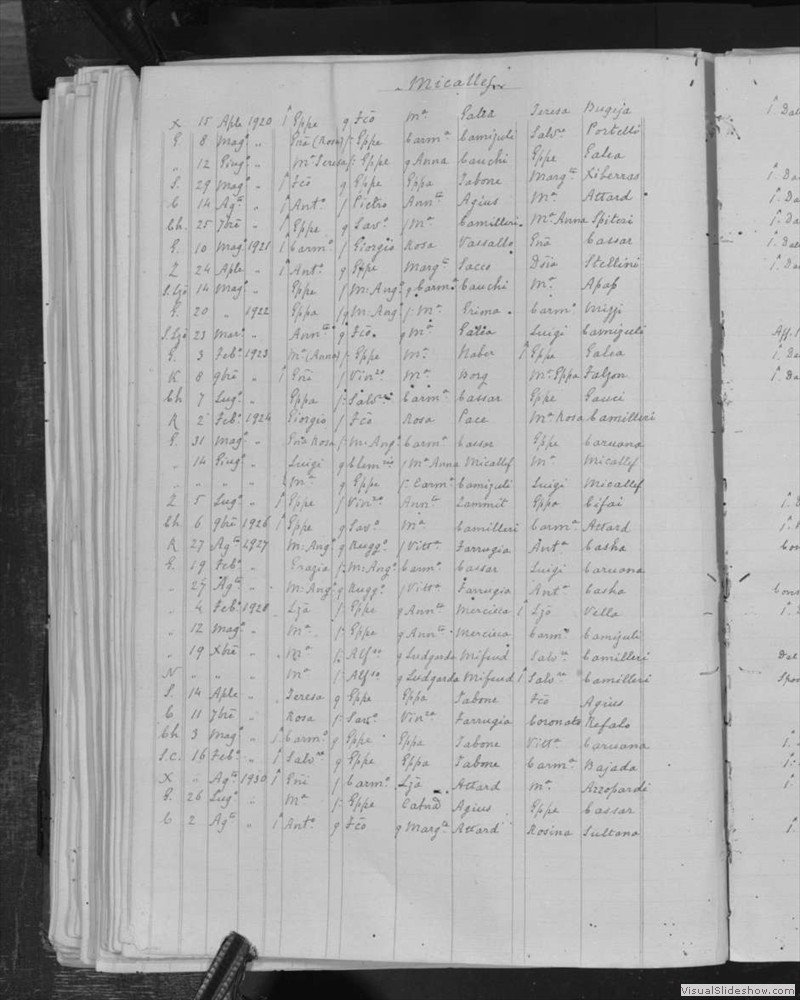 Micallef
X 15 Aple 1920 Eppe g Fcõ Mª Galea Teresa Bugeja
G. 8 Magº " (Rosa) f: Eppe Carmª Camizuli Salvre Portelli
" 12 Giugº " Mª Teresa f: Eppe g Anna Cauchi Eppe Galea
S. 29 Magº " Fcõ g Eppe Eppa Tabone Margta Xiberras
C 14 Agto " Antº f Pietro Anntta Agius Mª Attard
Ch. 25 7bre " Eppe g Savº f Mª Camilleri Mª Anna Spiteri
G. 10 Magº 1921 Carmº f Giorgio Rosa Vassallo Cassar
Z 24 Aple " Antº g Eppe Margta Sacco Stellini
S.Ljo 14 Magº " Eppe f M: Angº g Carmª Cauchi Mª Apap
G. 20 " 1922 Eppa M: Angº f: Mª Grima Carmº Mizzi
S.Ljo 23 Marº " Anntta g Fcõ g Mª Galea Luigi Camizuli
G. 3 Febº 1923 Mª (Anna) f: Eppe Mª Naber Eppe Galea
K 8 9bre " f Vinzo Mª Borg Mª Eppa Falzon
Ch 7 Lugº " Eppa f: Salvre Carmª Cassar Eppe Gauci
K 2 Febº 1924 Giorgio f Fcõ Rosa Pace Mª Rosa Camilleri
G. 31 Magº " Rosa f: M: Angº Carmª Cassar Eppe Caruana
" 14 Giugº " Luigi g f Mª Anna Micallef Mª Micallef
" " " " Mª g Eppe f: Carmª Camizuli Luigi Micallef
Z 5 Lugº " Eppe f Vinzo Anntta Zammit Eppa Cifai
Ch. 6 9bre 1926 Eppe g Savº Mª Camilleri Carmª Attard
K 27 Agto 1927 M: Angº g Ruggº f Vittª Farrugia Antª Casha
G. 19 Febº " Grazia f: M: Angº Carmª Cassar Luigi Caruana
" 27 Agto " M: Angº g Ruggº f Vittª Farrugia Antª Casha
" 4 Febº 1928 Ljã f: Eppe g Anntta Mercieca Ljõ Vella
" 12 Magº " Mª f: Eppe g Anntta Mercieca Carmº Camizuli
" 19 Xbre " Mª f: Alfso g Ludgarda Mifsud Salvre Camilleri
N " " " Mª f: Alfso g Ludgarda Mifsud Salvre Camilleri
S. 14 Aple " Teresa g Eppe Eppa Tabone Fcõ Agius
C 11 7bre " Rosa f: Savº Vinza Farrugia Coronato Refalo
Ch 3 Magº " Carmº g Eppe Eppa Tabone Vittª Caruana
S.C. 16 Febº " Salvre g Eppe Eppa Tabone Carmª Bajada
X " Agto 1930 f Carmº Ljã Attard Mª Azzopardi
G. 26 Lugº " Mª f: Eppe Catnã Agius Eppe Cassar
C 2 Agto " Antº g Fcõ g Margta Attard Rosina Sultana
VisualSlideshow.com